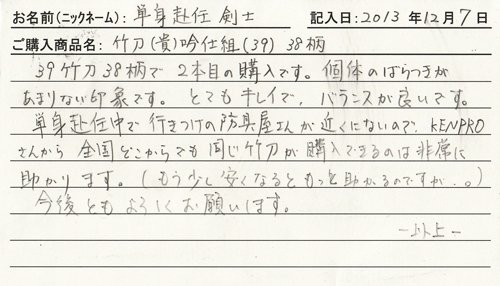 お名前(ニックネーム): 単身赴任 剣士 記入日: 2013年12月7日
ご購入商品名: 竹刀(貴)吟仕組(39) 38柄
39竹刀38柄で 2本目の購入です。個体のばらつきが
あまりない印象です。とてもキレイで、バランスが良いです。
単身赴任中で行きつけの防具屋さんが近くにないので、KENPRO
さんから 全国どこからでも同じ竹刀が購入できるのは非常に
助かります。(もう少し安くなるともっと助かるのですが。。)
今後ともよろしくお願いします。
－以上－